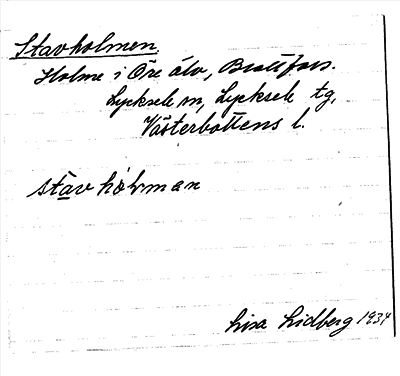 Stavholmen
Holme i Öre älv, Brattfors.
Lycksele sn, Lycksele tg,
Västerbottens l.
stav hòlman
Lisa Lidberg 1934